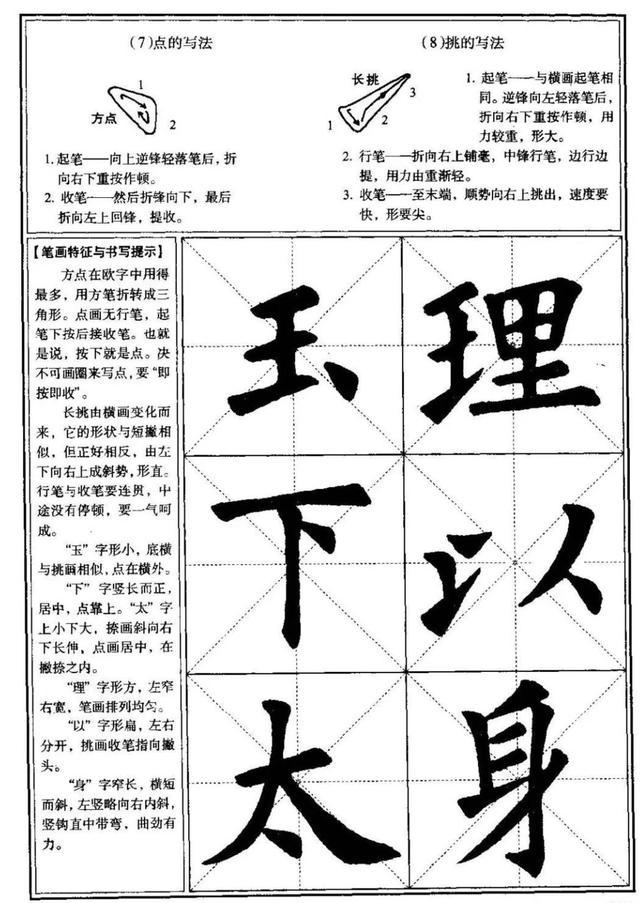 (7)点的写法
方点
1
2
1.起笔——向上逆锋轻落笔后，折
向右下重按作顿。
2. 收笔——然后折锋向下，最后
折向左上回锋，提收。
(8)挑的写法
长挑
1
2
3
1. 起笔——与横画起笔相
同。逆锋向左轻落笔后，
折向右下重按作顿，用
力较重，形大。
2. 行笔——折向右上铺毫，中锋行笔，边行边
提，用力由重渐轻。
3. 收笔——至末端，顺势向右上挑出，速度要
快，形要尖。
【笔画特征与书写提示】
方点在欧字中用得
最多，用方笔折转成三
角形。点画无行笔，起
笔下按后接收笔。也就
是说，按下就是点。决
不可画圈来写点，要“即
按即收”。
长挑由横画变化而
来，它的形状与短撇相
似，但正好相反，由左
下向右上成斜势，形直。
行笔与收笔要连贯，中
途没有停顿，要一气呵
成。
“玉”字形小，底横
与挑画相似，点在横外。
“下”字竖长而正，
居中，点靠上。“太”字
上小下大，捺画斜向右
下长伸，点画居中，在
撇捺之内。
“理”字形方，左窄
右宽，笔画排列均匀。
“以”字形扁，左右
分开，挑画收笔指向撇
头。
“身”字窄长，横短
而斜，左竖略向右内斜，
竖钩直中带弯，曲劲有
力。
玉理
下以
太身